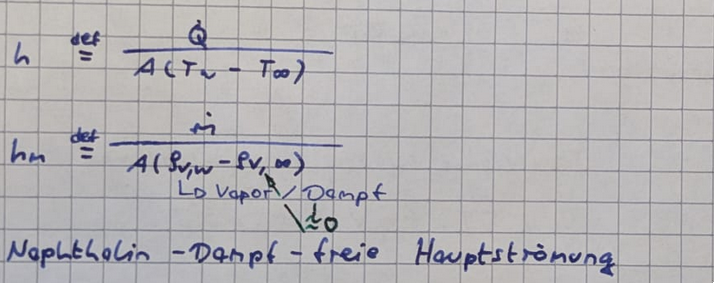 h ≝ Q̇ / A(T_w - T_∞)
h_m ≝ ṁ / A(ρ_v,w - ρ_v,∞)
↳ Vapor / Dampf
≈0
Naphthalin-Dampf-freie Hauptströmung